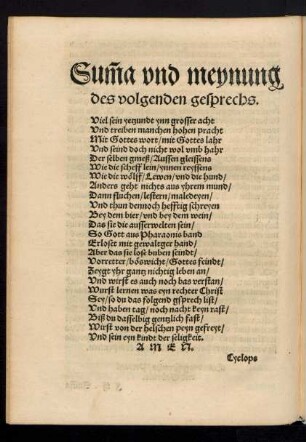 Sum̃a vnd meynung
des volgenden gesprechs.
Viel sein yetzundt ynn grosser acht
Vnd treiben manchen hohen pracht
Mit Gottes wort/ mit Gottes lahr
Vnd seind doch nicht wol vmb hahr
Der selben gneß/ Aussen gleissens
Wie die scheff sein/ ynnen reyssens
Wie die wölff/ Lewen/ vnd die hund/
Anders geht nichts aus yhrem mund/
Dann fluchen/ lestern/ maledeyen/
Vnd thun dennoch hefftig schreyen
Bey dem bier/ vnd bey dem wein/
Das sie die ausserwelten sein/
So Gott aus Pharaonis hand
Erlöst mit gewaltger hand/
Aber das sie lose buben seindt/
Vorretter/ böswicht/ Gottes feindt/
Zeygt yhr gantz nichtig leben an/
Vnd wirft es auch noch bas verstan/
Wurst lernen was eyn rechter Christ
Sey/ so du das folgend gsprech list/
Vnd haben tag/ noch nacht keyn rast/
Biß du dasselbig gentzlich fast/
Wirst von der helschen peyn gefreyt/
Vnd sein eyn kindt der seligkeit.
A M E N.
Cyclops